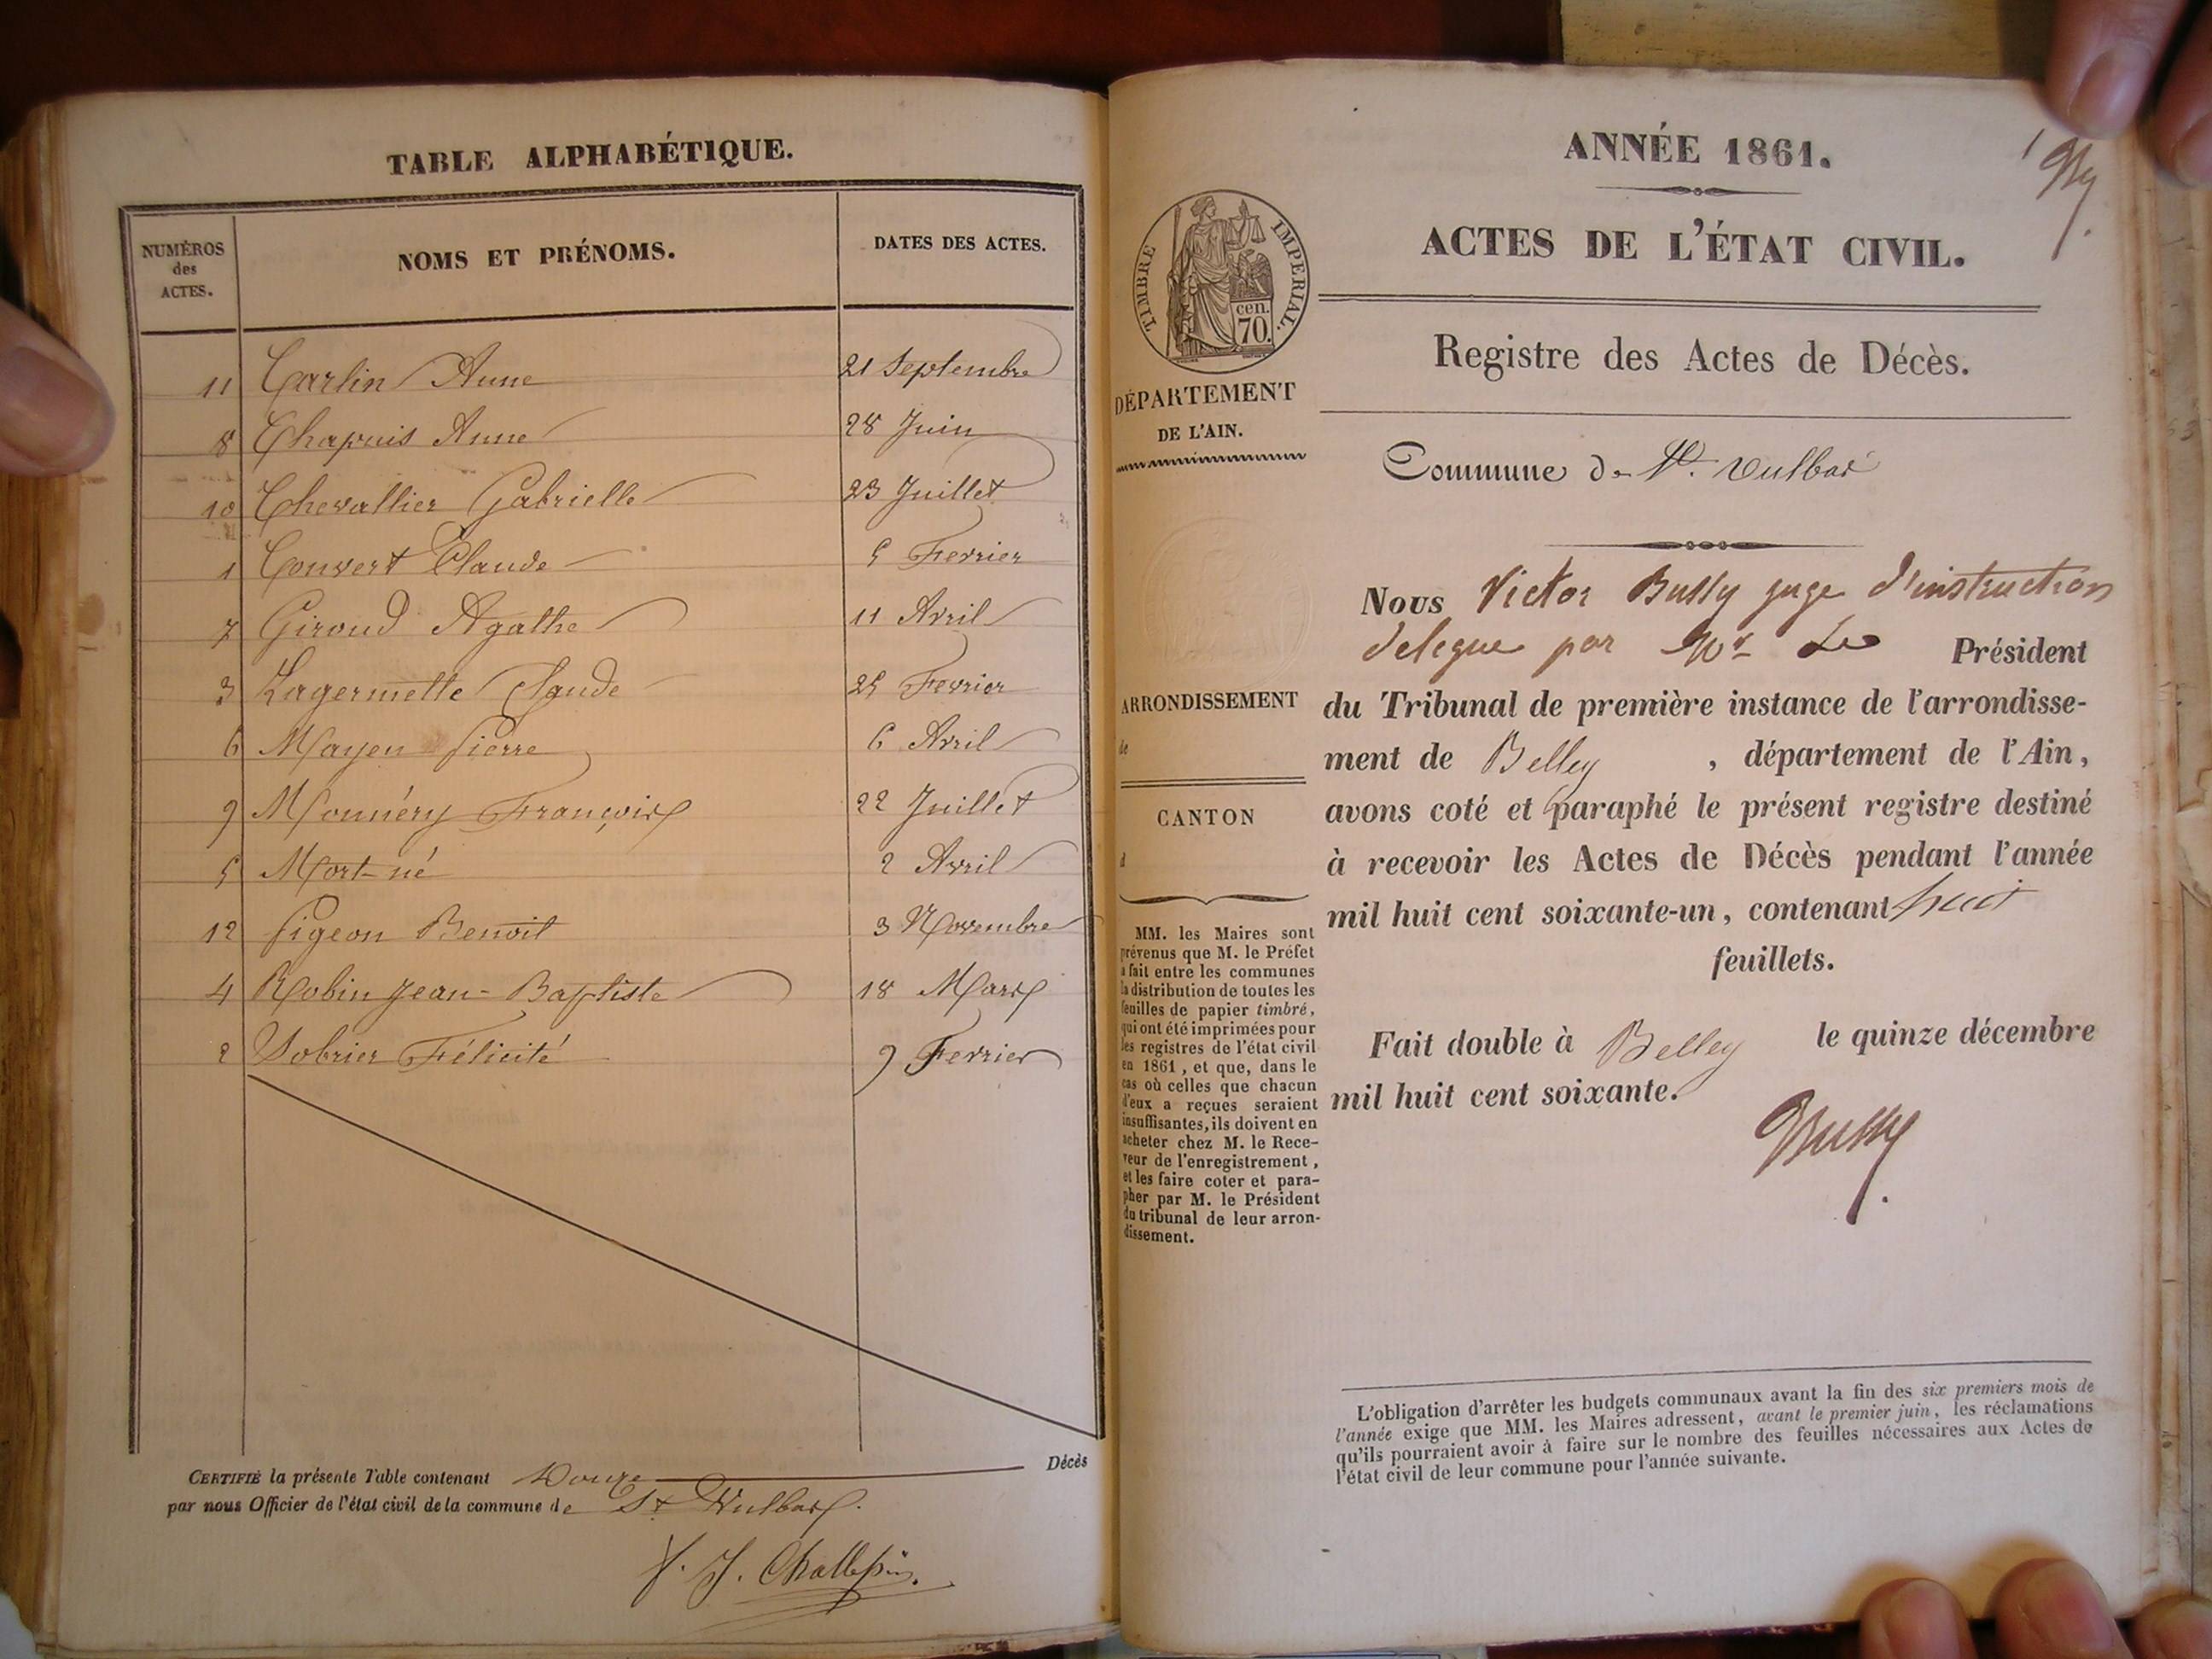 TABLE ALPHABÉTIQUE.
NUMÉROS des ACTES. NOMS ET PRÉNOMS. DATES DES ACTES.
11 Carlin Anne 21 Septembre
8 Chapuis Anne 28 Juin
10 Chevallier Gabrielle 23 Juillet
1 Convert Claude 5 Fevrier
7 Giroud Agathe 11 Avril
3 Lagermette Claude 25 Fevrier
6 Mayen Pierre 6 Avril
9 Monnéry François 22 Juillet
5 Mort-né 2 Avril
12 Pigeon Benoit 3 Novembre
4 Robin Jean-Baptiste 18 Mars
2 Sobrier Félicité 9 Fevrier
CERTIFIÉ la présente Table contenant Douze Décès
par nous Officier de l'état civil de la commune de St Vulbas.
ANNÉE 1861.
1
ACTES DE L'ÉTAT CIVIL.
TIMBRE IMPERIAL.
cen.
70.
DÉPARTEMENT
DE L'AIN.
ARRONDISSEMENT
de
CANTON
d
MM. les Maires sont
prévenus que M. le Préfet
a fait entre les communes
la distribution de toutes les
feuilles de papier timbré,
qui ont été imprimées pour
les registres de l'état civil
en 1861, et que, dans le
cas où celles que chacun
d'eux a reçues seraient
insuffisantes, ils doivent en
acheter chez M. le Rece-
veur de l'enregistrement,
et les faire coter et para-
pher par M. le Président
du tribunal de leur arron-
dissement.
Registre des Actes de Décès.
Commune de St. Vulbas
Nous Victor Bussy juge d'instruction
delegue par Mr Le Président
du Tribunal de première instance de l'arrondisse-
ment de Belley, département de l'Ain,
avons coté et paraphé le présent registre destiné
à recevoir les Actes de Décès pendant l'année
mil huit cent soixante-un, contenant huit
feuillets.
Fait double à Belley le quinze décembre
mil huit cent soixante.
Bussy
L'obligation d'arrêter les budgets communaux avant la fin des six premiers mois de
l'année exige que MM. les Maires adressent, avant le premier juin, les réclamations
qu'ils pourraient avoir à faire sur le nombre des feuilles nécessaires aux Actes de
l'état civil de leur commune pour l'année suivante.